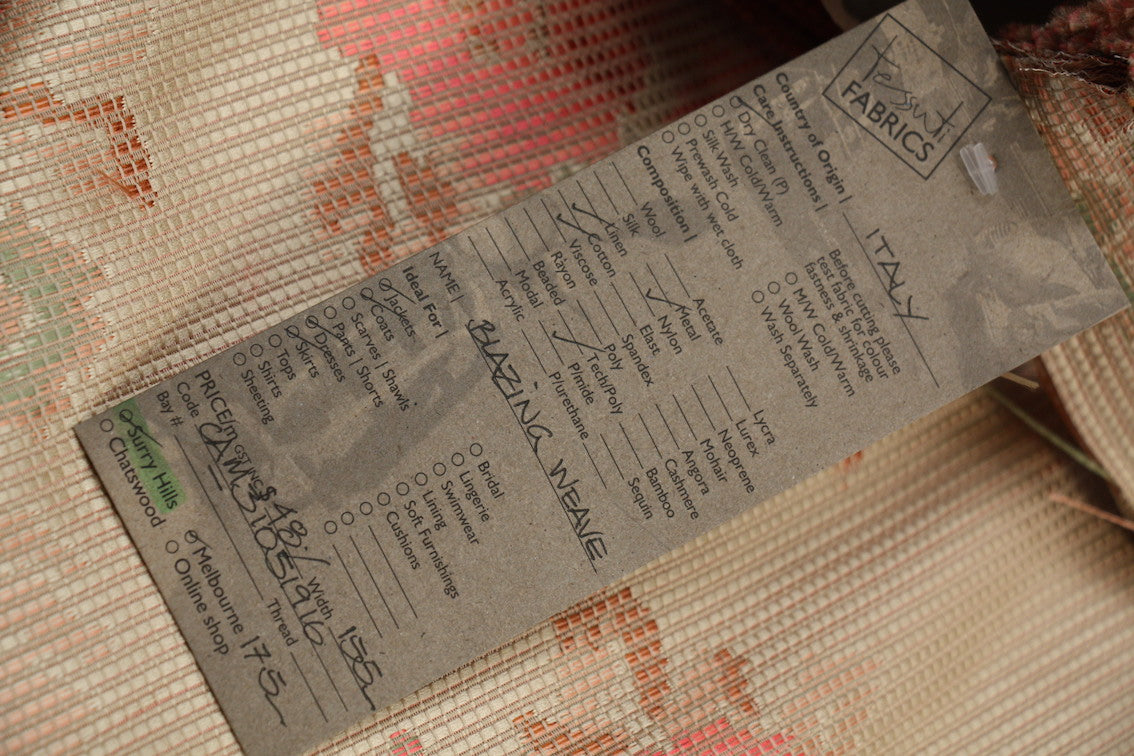 tessuti
FABRICS
Country of Origin | ITALY
Care Instructions |
Before cutting please
test fabric for colour
fastness & shrinkage
Dry Clean (P)
H/W Cold/Warm
Silk Wash
Prewash Cold
Wipe with wet cloth
M/W Cold/Warm
Wool Wash
Wash Separately
Composition |
Wool
Silk
Linen
Cotton
Viscose
Rayon
Beaded
Modal
Acrylic
Acetate
Metal
Nylon
Elast
Spandex
Poly
Tech/Poly
P/mide
P/urethane
Lycra
Lurex
Neoprene
Mohair
Angora
Cashmere
Bamboo
Sequin
NAME | BLAZING WEAVE
Ideal For |
Jackets
Coats
Scarves | Shawls
Pants | Shorts
Dresses
Skirts
Tops
Shirts
Sheeting
Bridal
Lingerie
Swimwear
Lining
Soft Furnishings
Cushions
Width 155
Code CAM31051916
Bay #
Thread
Surry Hills
Chatswood
Melbourne 175
Online shop